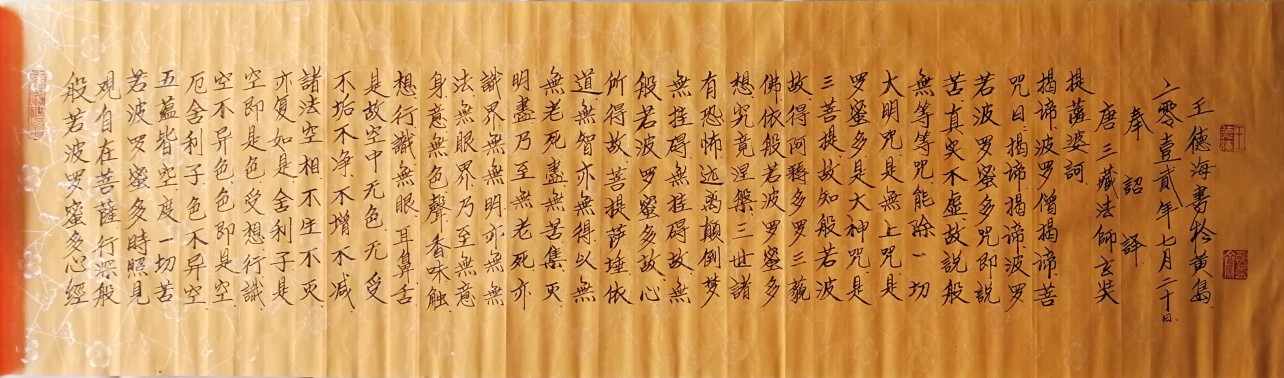 般若波罗蜜多心經
观自在菩薩.行深般
若波罗蜜多時照見
五蕴皆空度一切苦
厄舍利子色不异空
空不异色色即是空
空即是色受想行識
亦复如是舍利子是
諸法空相不生不灭
不垢不净.不增不减
是故空中无色无受
想行識無眼耳鼻舌
身意無色聲香味触
法無眼界乃至無意
識界無無明亦無無
明盡乃至無老死亦
無老死盡無苦集灭
道無智亦無得以無
所得故菩提萨埵依
般若波罗蜜多故心
無挂碍無挂碍故無
有恐怖远离颠倒梦
想究竟涅槃三世諸
佛依般若波罗蜜多
故得阿耨多罗三藐
三菩提故知般若波
罗蜜多是大神咒是
大明咒是無上咒是
無等等咒能除一切
苦真实不虚故説般
若波罗蜜多咒即説
咒曰揭谛揭谛波罗
揭谛波罗僧揭谛菩
提薩婆訶
唐三藏法師玄奘
奉詔譯
二零壹貳年七月二十日
王德海書於黄島